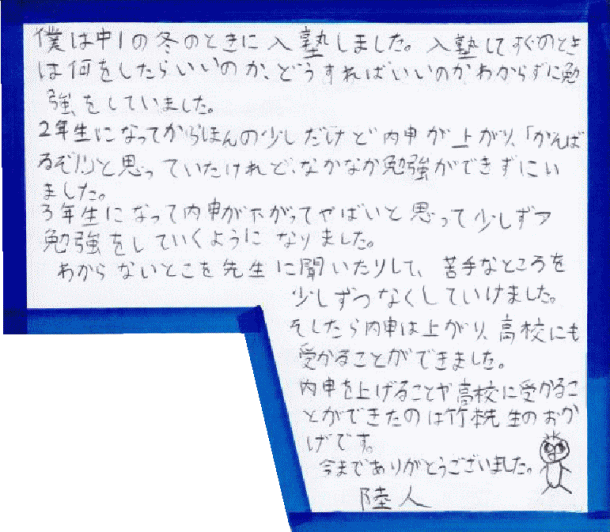 僕は中1の冬のときに入塾しました。入塾してすぐのとき
は何をしたらいいのか、どうすればいいのかわからずに勉
強をしていました。
2年生になってからほんの少しだけど内申が上がり、「がんば
るぞ!!」と思っていたけれど、なかなか勉強ができずにい
ました。
3年生になって内申が下がってやばいと思って少しずつ
勉強をしていくようになりました。
わからないとこを先生に聞いたりして、苦手なところを
少しずつなくしていけました。
そしたら内申は上がり、高校にも
受かることができました。
内申を上げることや高校に受かるこ
とができたのは竹先生のおか
げです。
今までありがとうございました。
陸人